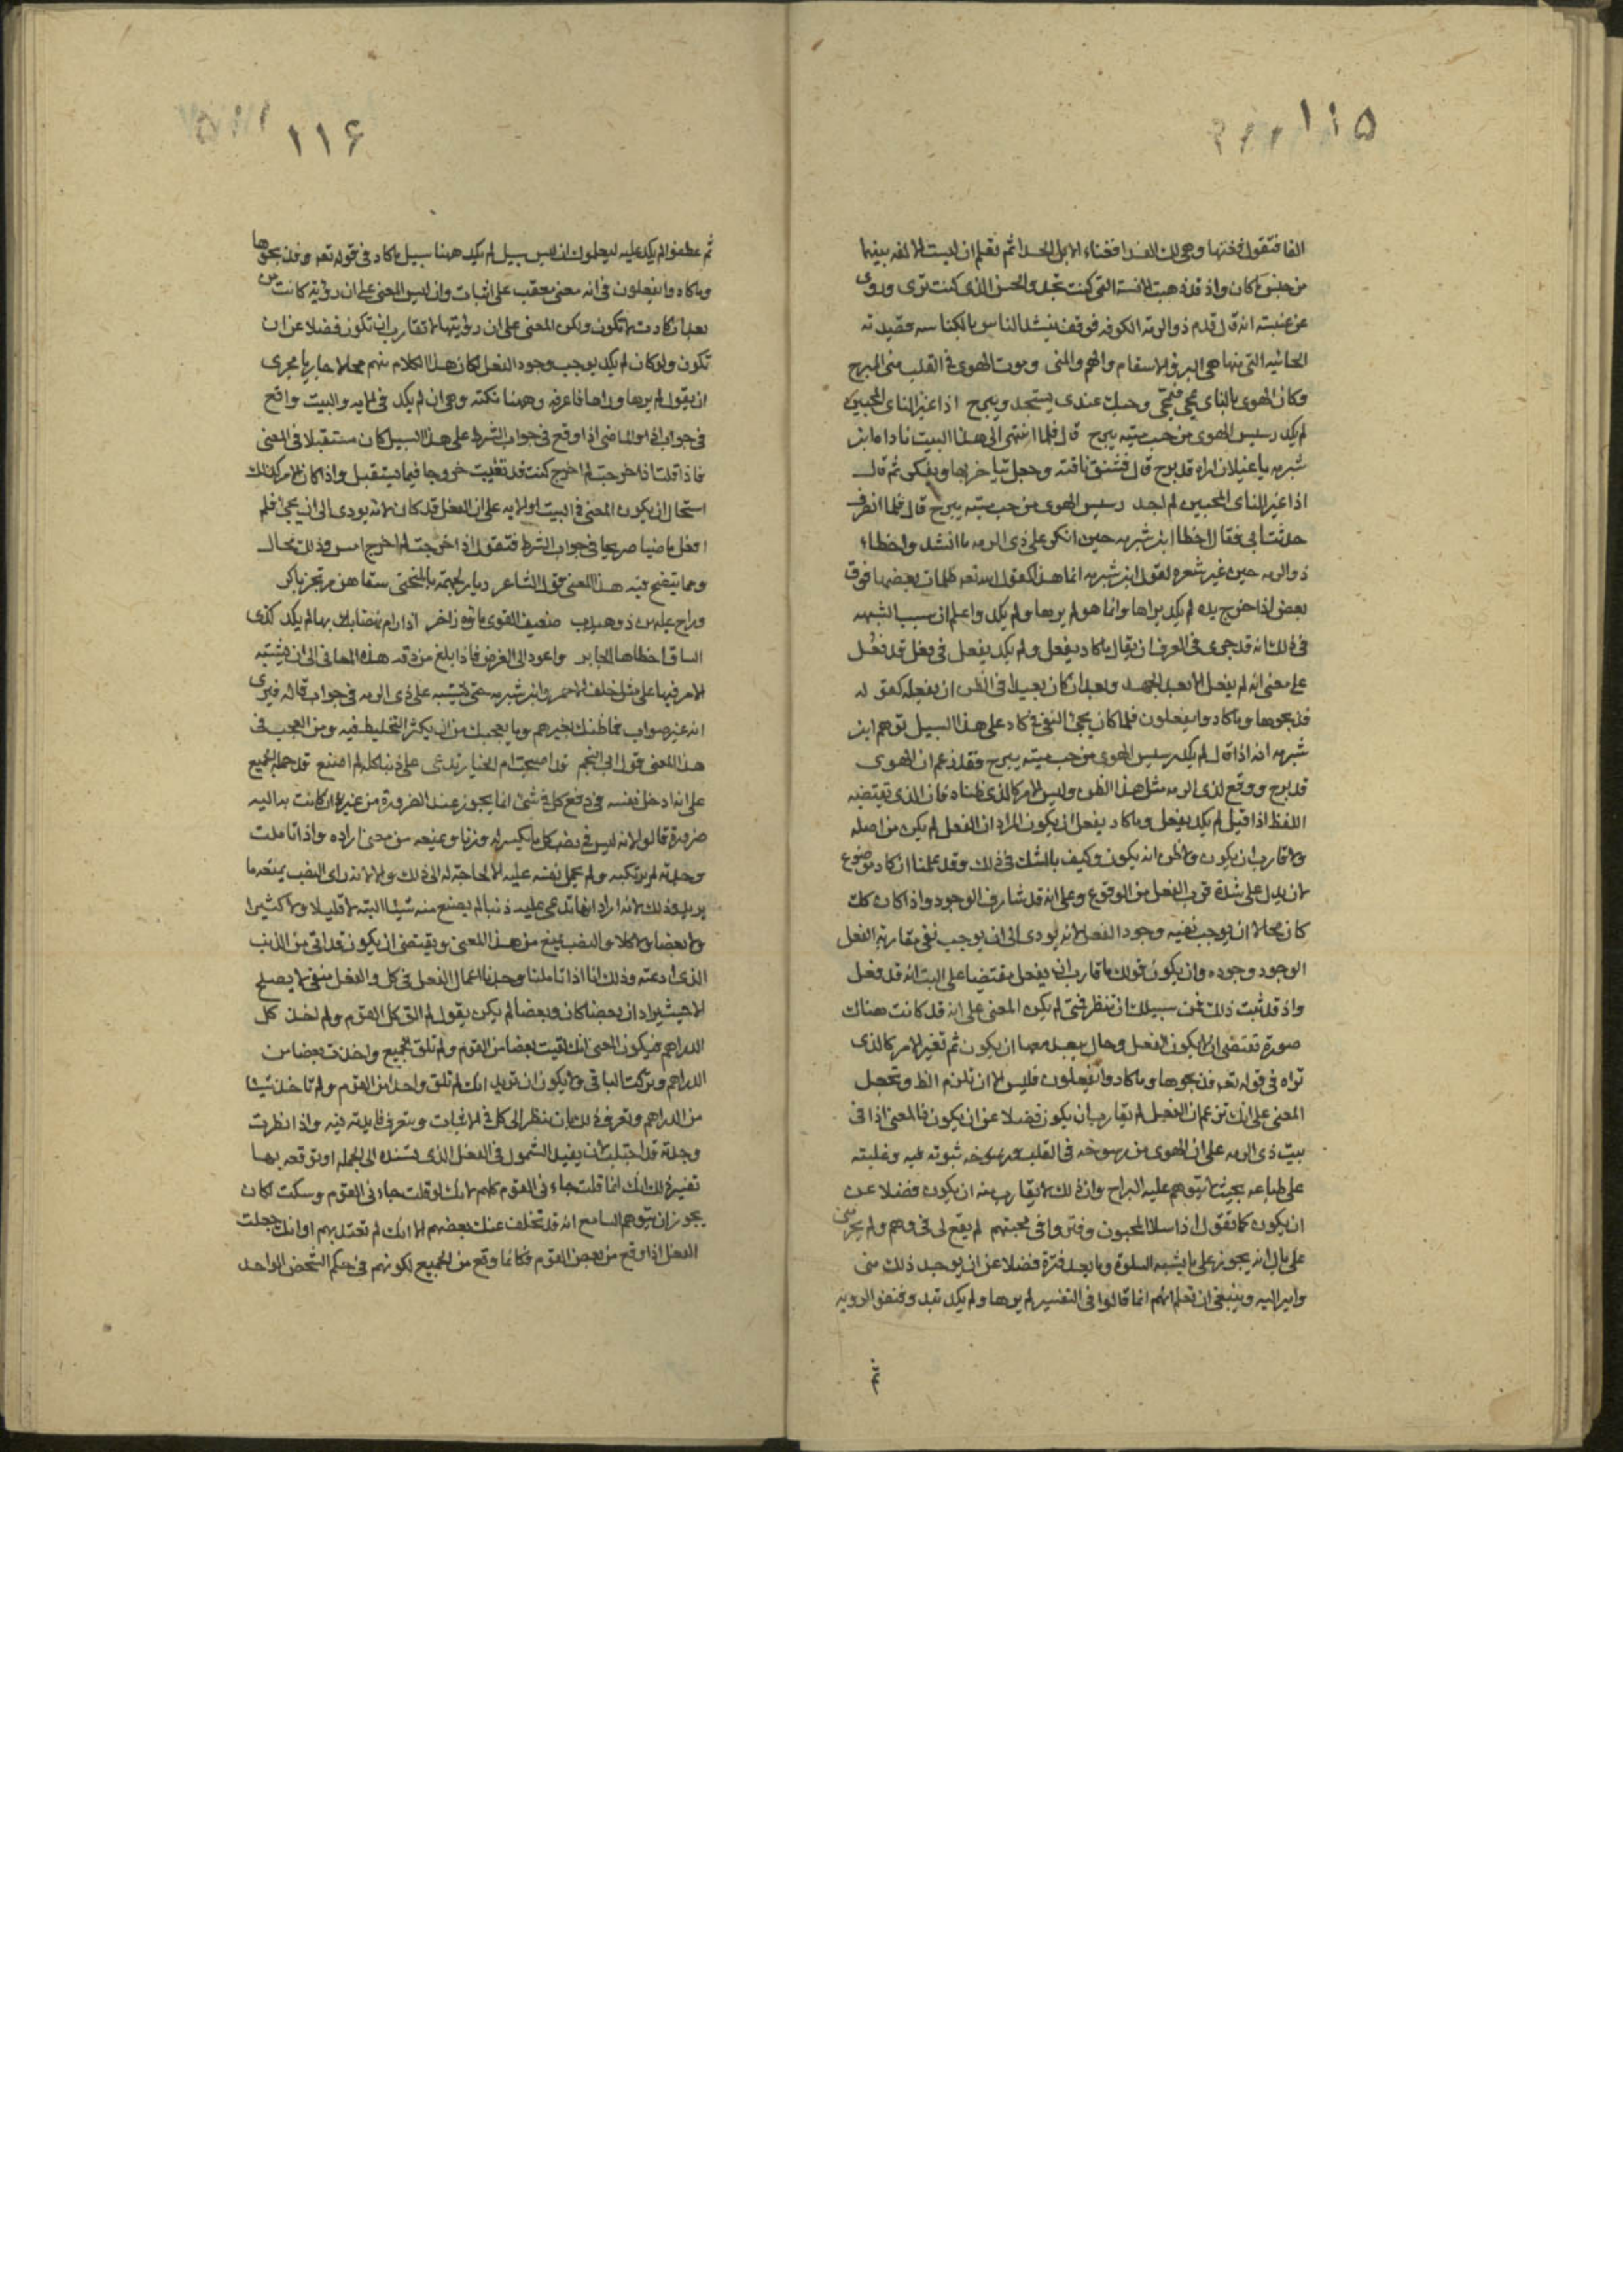 ١١٥
الفا فتقول فغنها وهي لك الفدا فغناء الابل الحدا ثم تعلم ان ليست الالفه بينها
من جنس ما كان واذ قد ذهبت الانسة التي كنت تجد والحسن الذي كنت ترى وروى
عن عنبسه انه قال قدم ذو الرمه الكوفه فوقف ينشد الناس بالكناسه قصيدته
الحائيه التي منها هي البرء والاسقام والهم والمنى وموت الهوى في القلب منى المبرح
وكان الهوى بالناى يمحى فيمحى وحبك عندى يستجد ويربح اذا غير الناى المحبين
لم يكد رسيس الهوى من حب ميه يبرح قال فلما انتهى الى هذا البيت ناداه ابن
شبرمه يا غيلان اراه قد برح قال فشنق ناقته وجعل يتاخر بها ويفكر ثم قال
اذا غير الناى المحبين لم اجد رسيس الهوى من حب ميه يبرح قال فلما انصرف
حدثت ابى فقال اخطا ابن شبرمه حين انكر على ذى الرمه ما انشد واخطاء
ذو الرمه حين غير شعره لقول ابن شبرمه انما هذا كقول الله تعه ظلمات بعضها فوق
بعض اذا اخرج يده لم يكد يراها وانما هو لم يرها ولم يكد واعلم ان سبب الشبهه
في ذلك انه قد جرى في العرف ان يقال ما كاد يفعل ولم يكد يفعل في فعل قد فعل
على معنى انه لم يفعل الا بعد الجهد وبعد ان كان بعيدا في الظن ان يفعله كقوله
فذبحوها وما كادوا يفعلون فلما كان مجئ النفى في كاد على هذا السبيل توهم ابن
شبرمه انه اذا قال لم يكد رسيس الهوى من حب ميه يبرح فقد زعم ان الهوى
قد برح ووقع لذى الرمه مثل هذا الظن وليس الامر كالذى ظناه فان الذى يقتضيه
اللفظ اذا قيل لم يكد يفعل وما كاد يفعل ان يكون المراد ان الفعل لم يكن من اصله
ولا قارب ان يكون ولا ظن انه يكون وكيف بالشك في ذلك وقد علمنا ان كاد موضوع
لان يدل على شدة قرب الفعل من الوقوع وعلى انه قد شارف الوجود واذا كان كك
كان محالا ان يوجب نفيه وجود الفعل لانه يودى الى ان يوجب نفى مقاربة الفعل
الوجود وجوده وان يكون قولك ما قارب ان يفعل مقتضيا على البت انه قد فعل
واذ قد ثبت ذلك فمن سبيلك ان تنظر فمتى لم يكن المعنى على انه قد كانت هناك
صورة تقتضى ان لا يكون الفعل وحال يبعد معها ان يكون ثم تغير الامر كالذى
تراه في قوله تعه فذبحوها وما كادوا يفعلون فليس الا ان تلزم الظ وتجعل
المعنى على انك تزعم ان الفعل لم يقارب ان يكون فضلا عن ان يكون فالمعنى اذا في
بيت ذى الرمه على ان الهوى من رسوخه في القلب ورسوخه ثبوته فيه وغلبته
على طباعه بحيث لا يتوهم عليه البراح وان ذلك لا يقارب منه ان يكون فضلا عن
ان يكون كما تقول اذا سلا المحبون وفتروا في محبتهم لم يقع لى في وهم ولم يجر منى
على بال انه يجوز على ما يشبه السلوة وما يعد فترة فضلا عن ان يوجد ذلك منى
واصير اليه وينبغى ان تعلم انهم انما قالوا في التفسير لم يرها ولم يكد تبد وفنفوا الرويه
ثم
١١۶
ثم عطفوا لم يكد عليه ليعلموك ان ليس سبيل لم يكد ههنا سبيل ما كاد في قوله تعه وفذبحوها
وما كادوا يفعلون في انه معنى معقب على اثبات وان ليس المعنى على ان رؤية كانت من
بعد ان كادت لا تكون ولكن المعنى على ان رؤيتها لا تقارب ان تكون فضلا عن ان
تكون ولو كان لم يكد يوجب وجود الفعل لكان هذا الكلام منهم محالا جاريا مجرى
ان يقول لم يرها وراها فاعرفه وههنا نكته وهي ان لم يكد في الايه والبيت واقع
في جواب اذا والماضى اذا وقع في جواب الشرط على هذا السبيل كان مستقبلا في المعنى
فاذا قلت اذا خرجت لم اخرج كنت قد نفيت خروجا فيما يستقبل واذا كان الامر كذلك
استحال ان يكون المعنى في البيت او الايه على ان الفعل قد كان لانه يودى الى ان يجئ فلم
افعل ماضيا صريحا في جواب الشرط فتقول اذا خرجت لم اخرج امس وذلك محال
ومما يتضح فيه هذا المعنى قول الشاعر ديار لجهمة بالمنحنى سقاهن مرتجز باكر
وراح عليهن ذو هيدب ضعيف القوى ماؤه زاخر اذا رام نهضا بها لم يكد كذى
الساق اخطاها الجابر واعود الى الغرض فاذا بلغ من دقة هذه المعانى الى ان يشتبه
الامر فيها على مثل خلف الاحمر وابن شبرمه حتى يشتبه على ذى الرمه في جواب قاله فيرى
انه غير صواب فما ظنك بغيرهم وما يعجبك من ان يكثر التخليط فيه ومن العجب في
هذا المعنى قول ابى النجم قد اصبحت ام الخيار تدعى على ذنبا كله لم اصنع قد حمله الجميع
على انه ادخل نفسه في رفع كل في شئ انما يجوز عند الضرورة من غير ان كانت به اليه
ضرورة قالوا لانه ليس في نصب كل ما يكسر له وزنا ويمنعه من معنى اراده واذا تاملت
وجدته لم يرتكبه ولم يحمل نفسه عليه الا لحاجة له الى ذلك والا لانه راى النصب يمنعه ما
يريد وذلك لانه اراد انها تدعى عليه ذنبا لم يصنع منه شيئا البته لا قليلا ولا كثيرا
ولا بعضا ولا كلا والنصب يمنع من هذا المعنى ويقتضى ان يكون قد اتى من الذنب
الذى ادعته وذلك انا اذا تاملنا وجدنا اعمال الفعل في كل والفعل منفى لا يصلح
الا حيث يراد ان بعضا كان وبعضا لم يكن يقول لم الق كل القوم ولم اخذ كل
الدراهم فيكون المعنى انك لقيت بعضا من القوم ولم تلق الجميع واخذت بعضا من
الدراهم وتركت الباقى ولا يكون ان تريد انك لم تلق واحدا من القوم ولم تاخذ شيئا
من الدراهم وتعرف ذلك بان تنظر الى كل في الاثبات وتتعرف فايدته فيه واذا نظرت
وجدته قد اجتلب لان يفيد الشمول في الفعل الذى تسنده الى الجمله او توقعه بها
تفسير ذلك انك انما قلت جاءنى القوم كلهم لانك لو قلت جاءنى القوم وسكت لكان
يجوز ان يتوهم السامع انه قد تخلف عنك بعضهم الا انك لم تعتد بهم او انك جعلت
الفعل اذا وقع من بعض القوم فكانما وقع من الجميع لكونهم في حكم الشخص الواحد